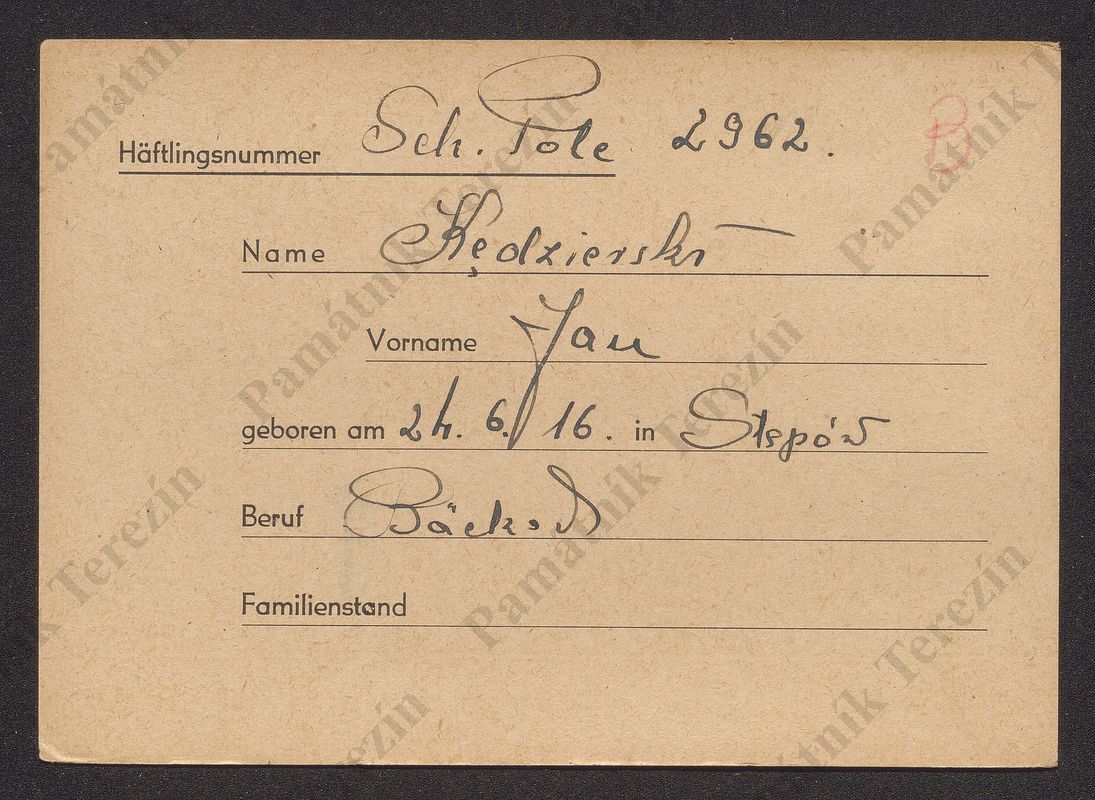 B
Häftlingsnummer Sch. Pole 2962.
Name Kędzierski
Vorname Jan
geboren am 24. 6. 16. in Stępów
Beruf Bäcker
Familienstand
Památník Terezín